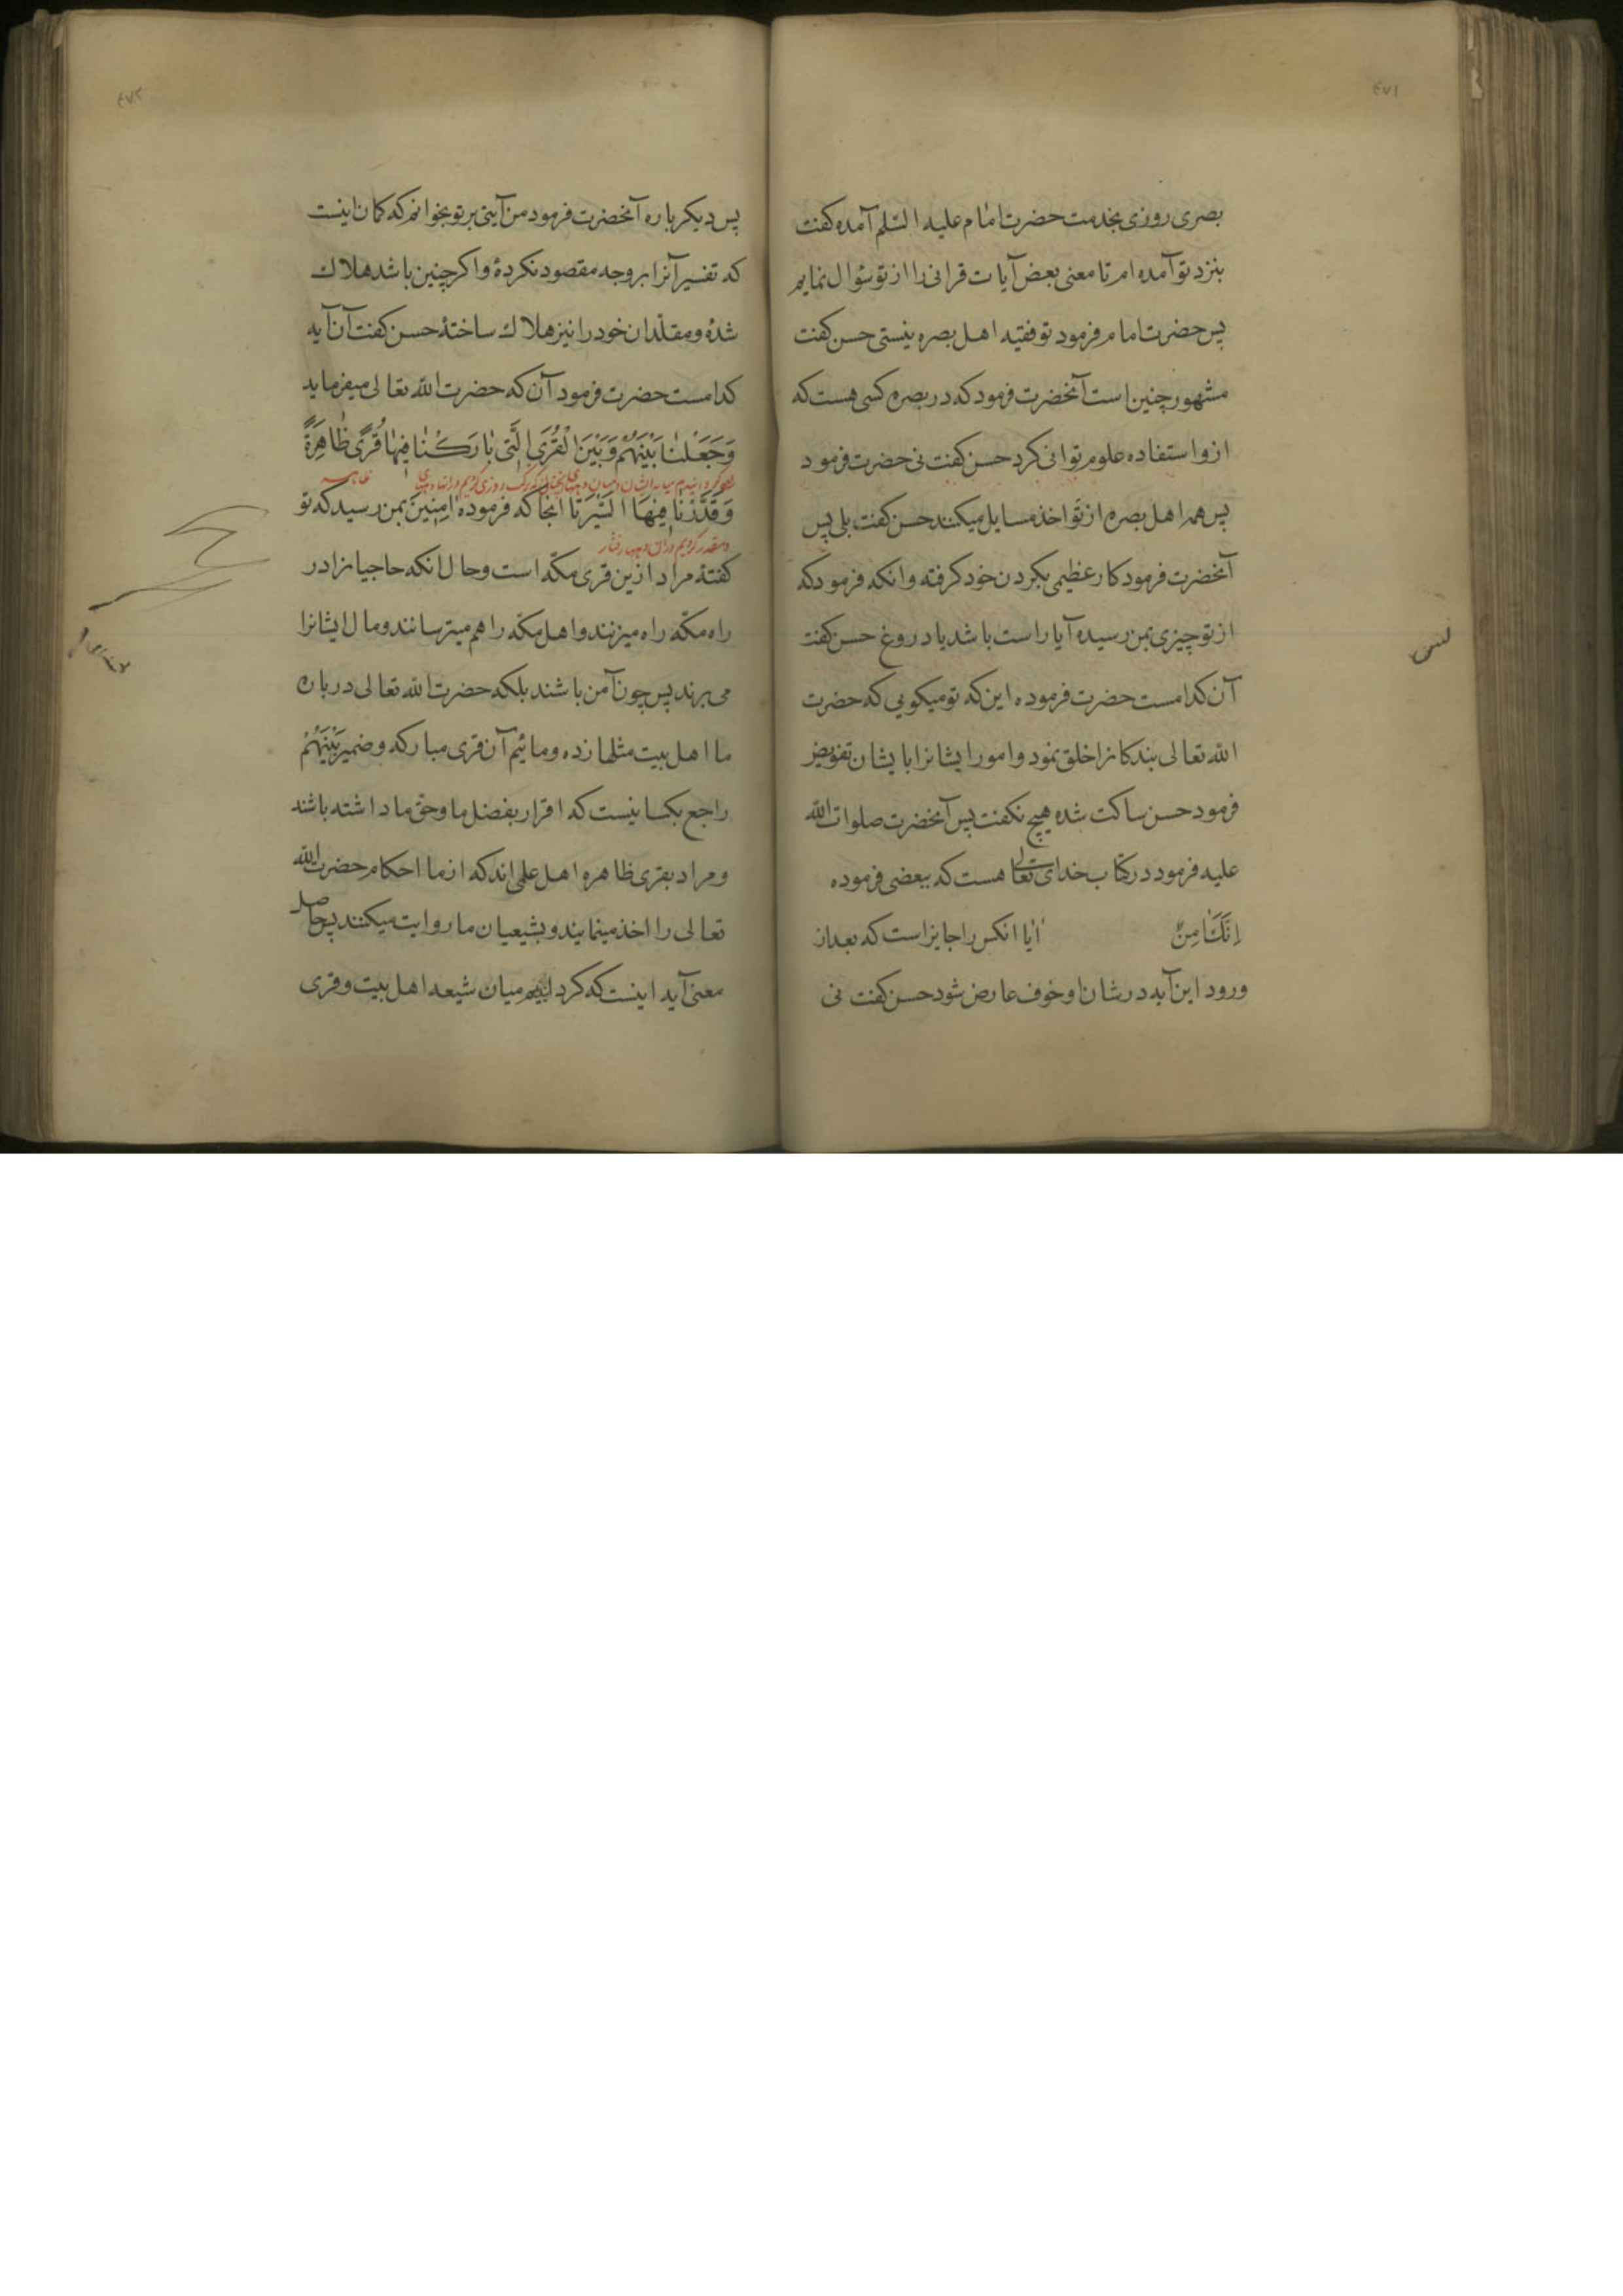 ٤٧١
بصری روزی بخدمت حضرت امام علیه السّلم آمده کفت
بنزد تو آمده ام تا معنی بعض آیات قرانی را از تو سؤال نمایم
پس حضرت امام فرمود تو فقیه اهل بصره نیستی حسن کفت
مشهور چنین است آنحضرت فرمود که در بصره کسی هست که
ازو استفاده علوم توانی کرد حسن کفت نی حضرت فرمود
پس همه اهل بصره از تو اخذ مسایل میکنند حسن کفت بلی پس
آنحضرت فرمود کار عظیمی بکردن خود کرفته وانکه فرمود که
از تو چیزی بمن رسیده آیا راست باشد یا دروغ حسن کفت
آن کدامست حضرت فرموده این که تو میکویی که حضرت
الله تعالی بندکانرا خلق نمود و امور ایشانرا بایشان تفویض
فرمود حسن ساکت شده هیچ نکفت پس آنحضرت صلوات الله
علیه فرمود در کتاب خدای تعالی هست که ببعضی فرموده
اِنَّکَ اٰمِنٌ ایا انکس را جایز است که بعد از
ورود این آیه در شان او خوف عارض شود حسن کفت نی
٤٧٢
پس دیکر باره آنحضرت فرمود من آیتی بر تو بخوانم که کمان اینست
که تفسیر آنرا بر وجه مقصود نکردهٔ واکر چنین باشد هلاک
شدهٔ و مقلّدان خود را نیز هلاک ساختهٔ حسن کفت آن آیه
کدامست حضرت فرمود آن که حضرت الله تعالی میفرماید
وَجَعَلْنٰا بَیْنَهُمْ وَبَیْنَ الْقُرَی الَّتی بٰارَکْنٰا فِیهٰا قُرًی ظٰاهِرَةً
ظاهر
وَقَدَّرْنٰا فِیهَا السَّیْرَ تا انجا که فرموده اٰمِنِینَ بمن رسید که تو
و مقدر کردیم در آن دیهها رفتار
کفتهٔ مراد ازین قری مکّه است و حال انکه حاجیانرا در
راه مکّه راه میزنند و اهل مکّه را هم میترسانند و مال ایشانرا
می برند پس چون آمن باشند بلکه حضرت الله تعالی در باره
ما اهل بیت مثلها زده و مائیم آن قری مبارکه و ضمیر بَیْنَهُمْ
راجع بکسانیست که اقرار بفضل ما و حق ما داشته باشند
و مراد بقری ظاهره اهل علمی اند که از ما احکام حضرت الله
تعالی را اخذ مینمایند و بشیعیان ما روایت میکنند پس حاصل
معنی آیه اینست که کردانیدیم میان شیعه اهل بیت و قری